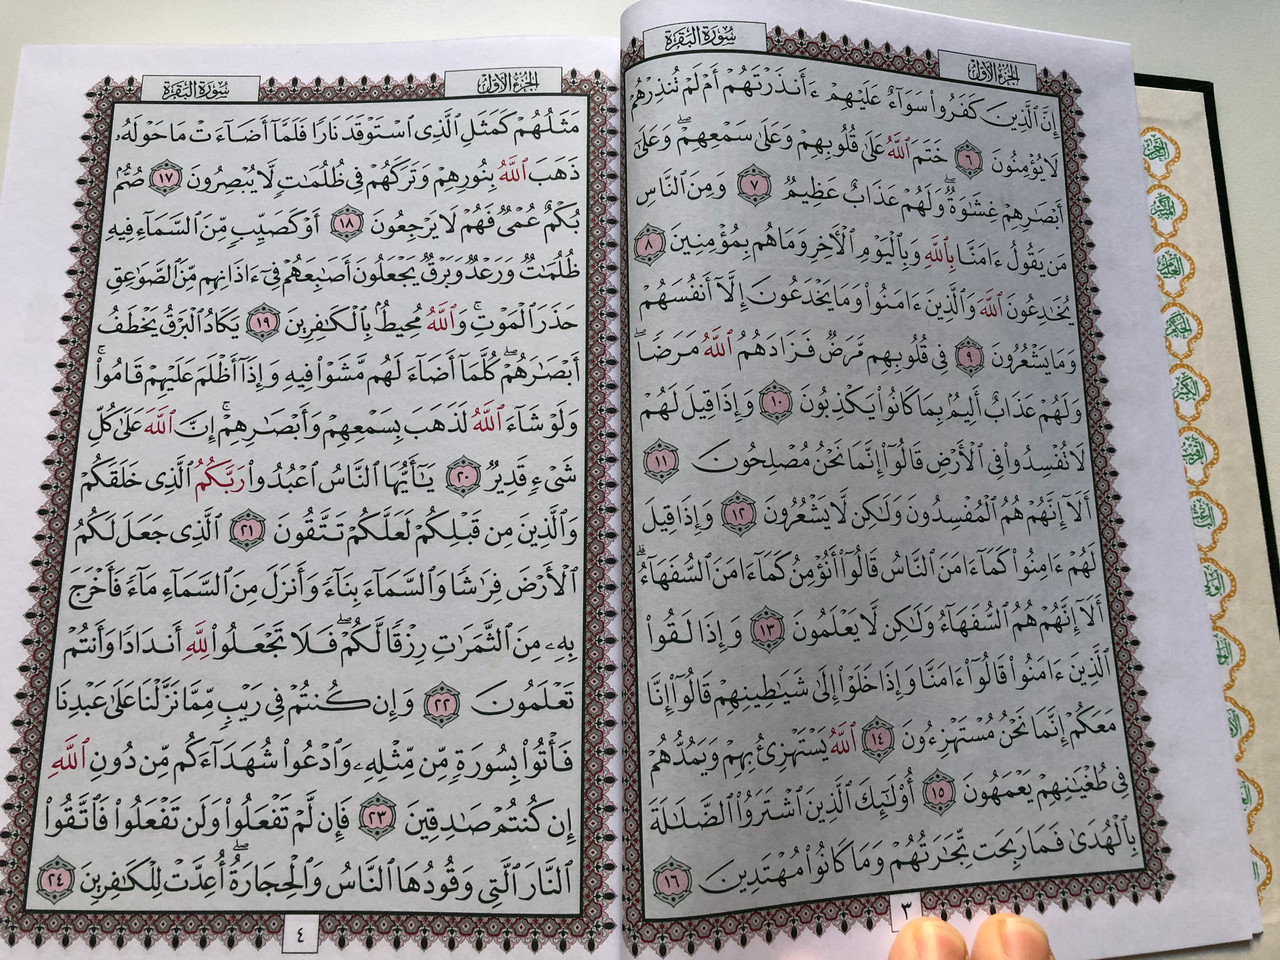 سُورَةُ البَقَرَة
الجُزءُ الأوّل
إِنَّ ٱلَّذِينَ كَفَرُوا۟ سَوَآءٌ عَلَيْهِمْ ءَأَنذَرْتَهُمْ أَمْ لَمْ تُنذِرْهُمْ
لَا يُؤْمِنُونَ ٦ خَتَمَ ٱللَّهُ عَلَىٰ قُلُوبِهِمْ وَعَلَىٰ سَمْعِهِمْ ۖ وَعَلَىٰٓ
أَبْصَٰرِهِمْ غِشَٰوَةٌ ۖ وَلَهُمْ عَذَابٌ عَظِيمٌ ٧ وَمِنَ ٱلنَّاسِ
مَن يَقُولُ ءَامَنَّا بِٱللَّهِ وَبِٱلْيَوْمِ ٱلْأَخِرِ وَمَا هُم بِمُؤْمِنِينَ ٨
يُخَٰدِعُونَ ٱللَّهَ وَٱلَّذِينَ ءَامَنُوا۟ وَمَا يَخْدَعُونَ إِلَّآ أَنفُسَهُمْ
وَمَا يَشْعُرُونَ ٩ فِى قُلُوبِهِم مَّرَضٌ فَزَادَهُمُ ٱللَّهُ مَرَضًا ۖ
وَلَهُمْ عَذَابٌ أَلِيمٌۢ بِمَا كَانُوا۟ يَكْذِبُونَ ١٠ وَإِذَا قِيلَ لَهُمْ
لَا تُفْسِدُوا۟ فِى ٱلْأَرْضِ قَالُوٓا۟ إِنَّمَا نَحْنُ مُصْلِحُونَ ١١
أَلَآ إِنَّهُمْ هُمُ ٱلْمُفْسِدُونَ وَلَٰكِن لَّا يَشْعُرُونَ ١٢ وَإِذَا قِيلَ
لَهُمْ ءَامِنُوا۟ كَمَآ ءَامَنَ ٱلنَّاسُ قَالُوٓا۟ أَنُؤْمِنُ كَمَآ ءَامَنَ ٱلسُّفَهَآءُ ۗ
أَلَآ إِنَّهُمْ هُمُ ٱلسُّفَهَآءُ وَلَٰكِن لَّا يَعْلَمُونَ ١٣ وَإِذَا لَقُوا۟
ٱلَّذِينَ ءَامَنُوا۟ قَالُوٓا۟ ءَامَنَّا وَإِذَا خَلَوْا۟ إِلَىٰ شَيَٰطِينِهِمْ قَالُوٓا۟ إِنَّا
مَعَكُمْ إِنَّمَا نَحْنُ مُسْتَهْزِءُونَ ١٤ ٱللَّهُ يَسْتَهْزِئُ بِهِمْ وَيَمُدُّهُمْ
فِى طُغْيَٰنِهِمْ يَعْمَهُونَ ١٥ أُو۟لَٰٓئِكَ ٱلَّذِينَ ٱشْتَرَوُا۟ ٱلضَّلَٰلَةَ
بِٱلْهُدَىٰ فَمَا رَبِحَت تِّجَٰرَتُهُمْ وَمَا كَانُوا۟ مُهْتَدِينَ ١٦
٣
الجُزءُ الأوّل
سُورَةُ البَقَرَة
مَثَلُهُمْ كَمَثَلِ ٱلَّذِى ٱسْتَوْقَدَ نَارًا فَلَمَّآ أَضَآءَتْ مَا حَوْلَهُۥ
ذَهَبَ ٱللَّهُ بِنُورِهِمْ وَتَرَكَهُمْ فِى ظُلُمَٰتٍ لَّا يُبْصِرُونَ ١٧ صُمٌّۢ
بُكْمٌ عُمْىٌ فَهُمْ لَا يَرْجِعُونَ ١٨ أَوْ كَصَيِّبٍ مِّنَ ٱلسَّمَآءِ فِيهِ
ظُلُمَٰتٌ وَرَعْدٌ وَبَرْقٌ يَجْعَلُونَ أَصَٰبِعَهُمْ فِىٓ ءَاذَانِهِم مِّنَ ٱلصَّوَٰعِقِ
حَذَرَ ٱلْمَوْتِ ۚ وَٱللَّهُ مُحِيطٌۢ بِٱلْكَٰفِرِينَ ١٩ يَكَادُ ٱلْبَرْقُ يَخْطَفُ
أَبْصَٰرَهُمْ ۖ كُلَّمَآ أَضَآءَ لَهُم مَّشَوْا۟ فِيهِ وَإِذَآ أَظْلَمَ عَلَيْهِمْ قَامُوا۟ ۚ
وَلَوْ شَآءَ ٱللَّهُ لَذَهَبَ بِسَمْعِهِمْ وَأَبْصَٰرِهِمْ ۚ إِنَّ ٱللَّهَ عَلَىٰ كُلِّ
شَىْءٍ قَدِيرٌ ٢٠ يَٰٓأَيُّهَا ٱلنَّاسُ ٱعْبُدُوا۟ رَبَّكُمُ ٱلَّذِى خَلَقَكُمْ
وَٱلَّذِينَ مِن قَبْلِكُمْ لَعَلَّكُمْ تَتَّقُونَ ٢١ ٱلَّذِى جَعَلَ لَكُمُ
ٱلْأَرْضَ فِرَٰشًا وَٱلسَّمَآءَ بِنَآءً وَأَنزَلَ مِنَ ٱلسَّمَآءِ مَآءً فَأَخْرَجَ
بِهِۦ مِنَ ٱلثَّمَرَٰتِ رِزْقًا لَّكُمْ ۖ فَلَا تَجْعَلُوا۟ لِلَّهِ أَندَادًا وَأَنتُمْ
تَعْلَمُونَ ٢٢ وَإِن كُنتُمْ فِى رَيْبٍ مِّمَّا نَزَّلْنَا عَلَىٰ عَبْدِنَا
فَأْتُوا۟ بِسُورَةٍ مِّن مِّثْلِهِۦ وَٱدْعُوا۟ شُهَدَآءَكُم مِّن دُونِ ٱللَّهِ
إِن كُنتُمْ صَٰدِقِينَ ٢٣ فَإِن لَّمْ تَفْعَلُوا۟ وَلَن تَفْعَلُوا۟ فَٱتَّقُوا۟
ٱلنَّارَ ٱلَّتِى وَقُودُهَا ٱلنَّاسُ وَٱلْحِجَارَةُ ۖ أُعِدَّتْ لِلْكَٰفِرِينَ ٢٤
٤